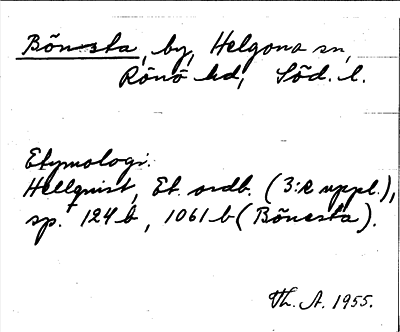 Bönsta, by, Helgona sn,
Rönö hd, Söd. l.
Etymologi:
Hellquist, Et. ordb. (3:e uppl.),
sp. 124 b, 1061 b (Bönesta).
Th. A. 1955.